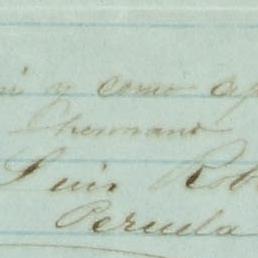 mi y como ap
hermano
Luis Rob
Peruela